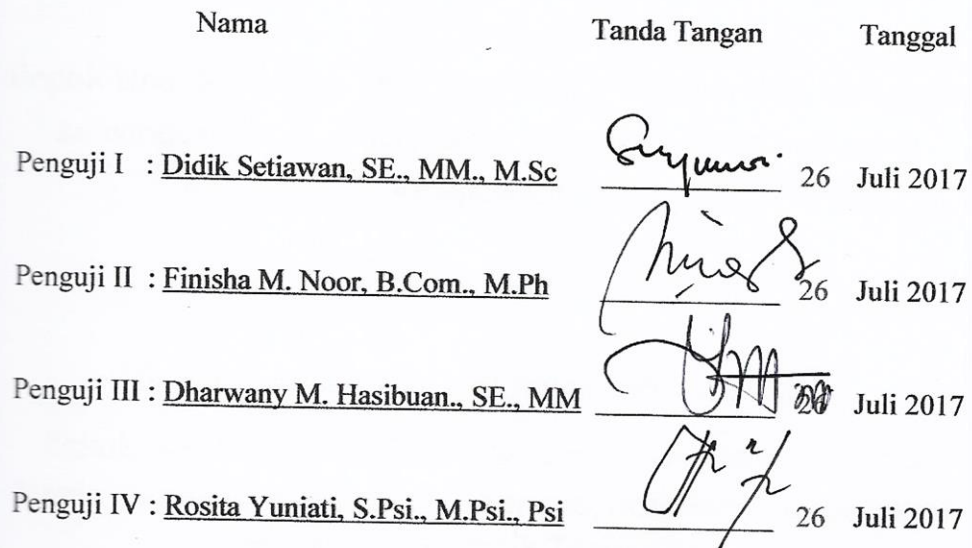 Nama Tanda Tangan Tanggal
Penguji I : Didik Setiawan, SE., MM., M.Sc 26 Juli 2017
Penguji II : Finisha M. Noor, B.Com., M.Ph 26 Juli 2017
Penguji III : Dharwany M. Hasibuan., SE., MM 26 Juli 2017
Penguji IV : Rosita Yuniati, S.Psi., M.Psi., Psi 26 Juli 2017